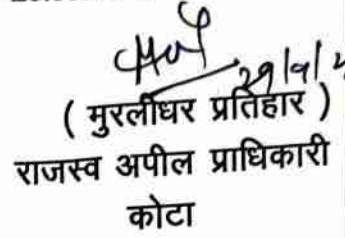 29/9/2
( मुरलीधर प्रतिहार )
राजस्व अपील प्राधिकारी
कोटा